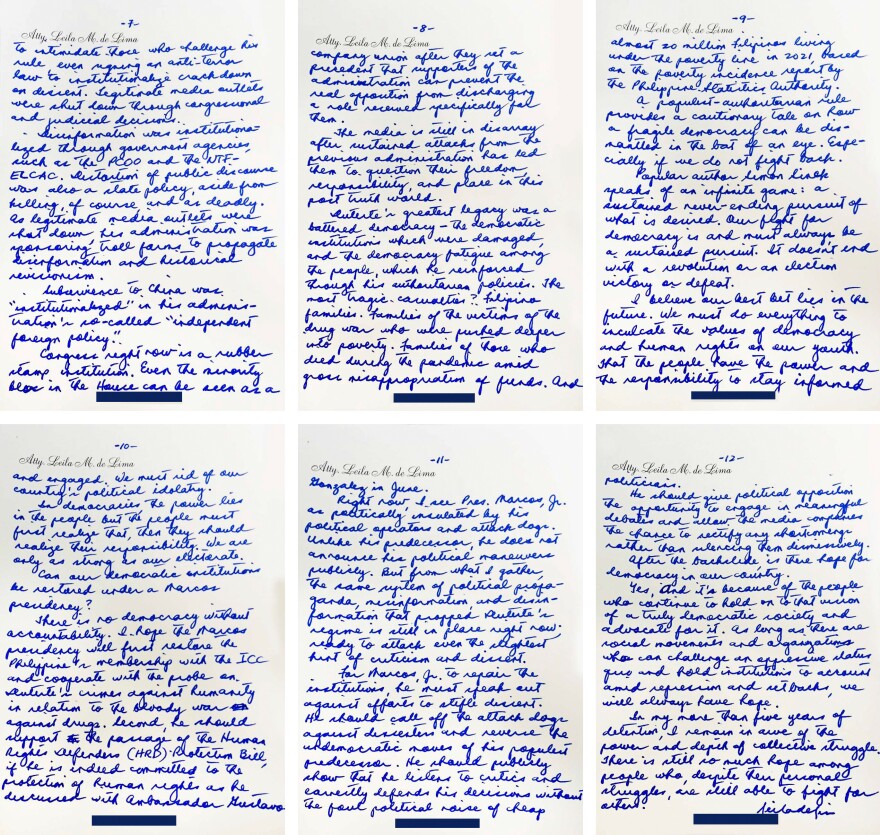 -7-
Atty. Leila M. de Lima
to intimidate those who challenge his
rule even signing an anti-terror
law to institutionalize crackdown
on dissent. Legitimate media outlets
were shut down through congressional
and judicial decisions.
Disinformation was institutiona-
lized through government agencies
such as the PCOO and the NTF-
ELCAC. Distortion of public discourse
was also a state policy, aside from
killing, of course and as deadly.
As legitimate media outlets were
shut down, his administration was
sponsoring troll farms to propagate
disinformation and historical
revisionism.
Subservience to China was
"institutionalized" in his adminis-
tration's so-called "independent
foreign policy."
Congress right now is a rubber
stamp institution. Even the minority
bloc in the House can be seen as a
-8-
Atty. Leila M. de Lima
company union after they set a
precedent that supporters of the
administration can prevent the
real opposition from discharging
a role reserved specifically for
them.
The media is still in disarray
after sustained attacks from the
previous administration has led
them to question their freedom,
responsibility, and place in this
post truth world.
Duterte's greatest legacy was a
battered democracy – the democratic
institutions which were damaged,
and the democracy fatigue among
the people, which he reinforced
through his authoritarian policies. The
most tragic casualties? Filipino
families. Families of the victims of the
drug war who were pushed deeper
into poverty. Families of those who
died during the pandemic amid
gross misappropriation of funds. And
-9-
Atty. Leila M. de Lima
almost 20 million Filipinos living
under the poverty line in 2021, based
on the poverty incidence report by
the Philippine Statistics Authority.
A populist-authoritarian rule
provides a cautionary tale on how
a fragile democracy can be dis-
mantled in the bat of an eye. Espe-
cially if we do not fight back.
Popular author Simon Sinek
speaks of an infinite game: a
sustained never-ending pursuit of
what is desired. Our fight for
democracy is and must always be
a sustained pursuit. It doesn't end
with a revolution or an election
victory or defeat.
I believe our best bet lies in the
future. We must do everything to
inculcate the values of democracy
and human rights on our youth.
That the people have the power and
the responsibility to stay informed
-10-
Atty. Leila M. de Lima
and engaged. We must rid of our
country's political idolatry.
In democracies the power lies
in the people but the people must
first realize that, then they should
realize their responsibility. We are
only as strong as our electorate.
Can our democratic institutions
be restored under a Marcos
presidency?
There is no democracy without
accountability. I hope the Marcos
presidency will first restore the
Philippine's membership with the ICC
and cooperate with the probe on
Duterte's crimes against humanity
in relation to the bloody war
against drugs. Second, he should
support the passage of the Human
Rights Defenders (HRD) Protection Bill,
if he is indeed committed to the
protection of human rights as he
discussed with Ambassador Gustavo
-11-
Atty. Leila M. de Lima
Gonzalez in June.
Right now I see Pres. Marcos, Jr.
as politically insulated by his
political operators and attack dogs.
Unlike his predecessor, he does not
announce his political maneuvers
publicly. But from what I gather
the same system of political propa-
ganda, misinformation, and disin-
formation that propped Duterte's
regime is still in place right now
ready to attack even the slightest
hint of criticism and dissent.
For Marcos, Jr. to repair the
institutions, he must speak out
against efforts to stifle dissent.
He should call off the attack dogs
against dissenters and reverse the
undemocratic moves of his populist
predecessor. He should publicly
show that he listens to critics and
earnestly defends his decisions without
the foul political noise of cheap
-12-
Atty. Leila M. de Lima
politicians.
He should give political opposition
the opportunity to engage in meaningful
debates and allow the media companies
the chance to rectify any shortcomings
rather than silencing them dismissively.
After the backslide is there hope for
democracy in our country.
Yes, and it's because of the people
who continue to hold on to that vision
of a truly democratic society and
advocate for it. As long as there are
social movements and organizations
who can challenge an oppressive status
quo and hold institutions to account
amid repression and setbacks, we
will always have hope.
In my more than five years of
detention, I remain in awe of the
power and depth of collective struggle.
There is still so much hope among
people who, despite their personal
struggles, are still able to fight for
others.